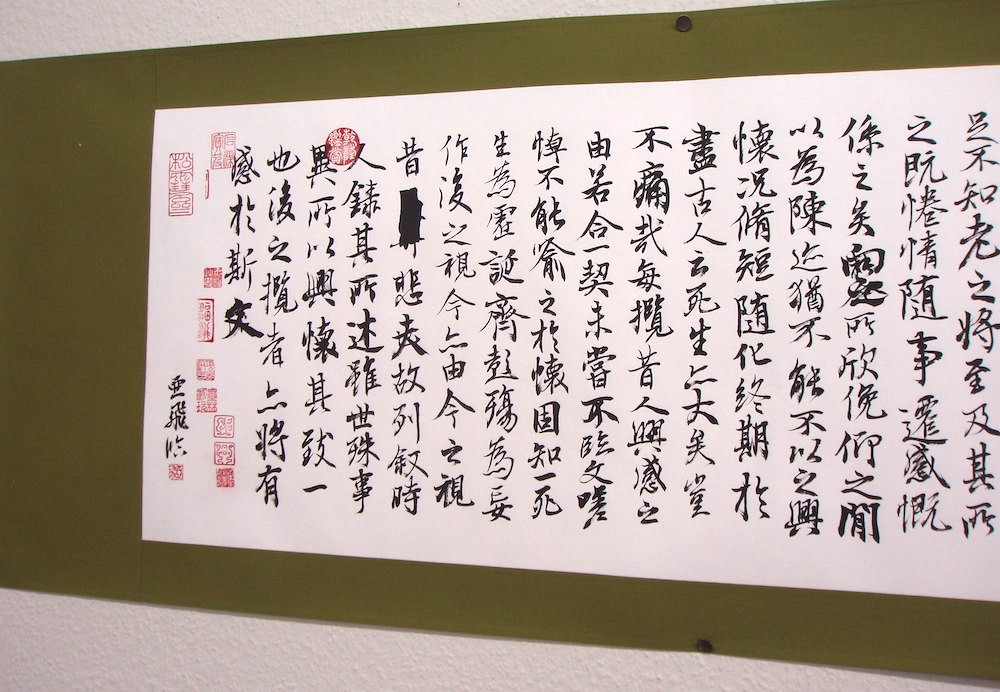 足不知老之將至及其所
之既惓情隨事遷感慨
係之矣向之所欣俛仰之閒
以為陳迹猶不能不以之興
懷況脩短隨化終期於
盡古人云死生亦大矣豈
不痛哉每攬昔人興感之
由若合一契未嘗不臨文嗟
悼不能喻之於懷固知一死
生為虛誕齊彭殤為妄
作後之視今亦由今之視
昔悲夫故列叙時
人錄其所述雖世殊事
異所以興懷其致一
也後之攬者亦將有
感於斯文
亞飛臨